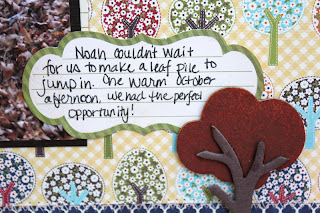 Noah couldn't wait
for us to make a leaf pile to
jump in. One warm October
afternoon, we had the perfect
opportunity!